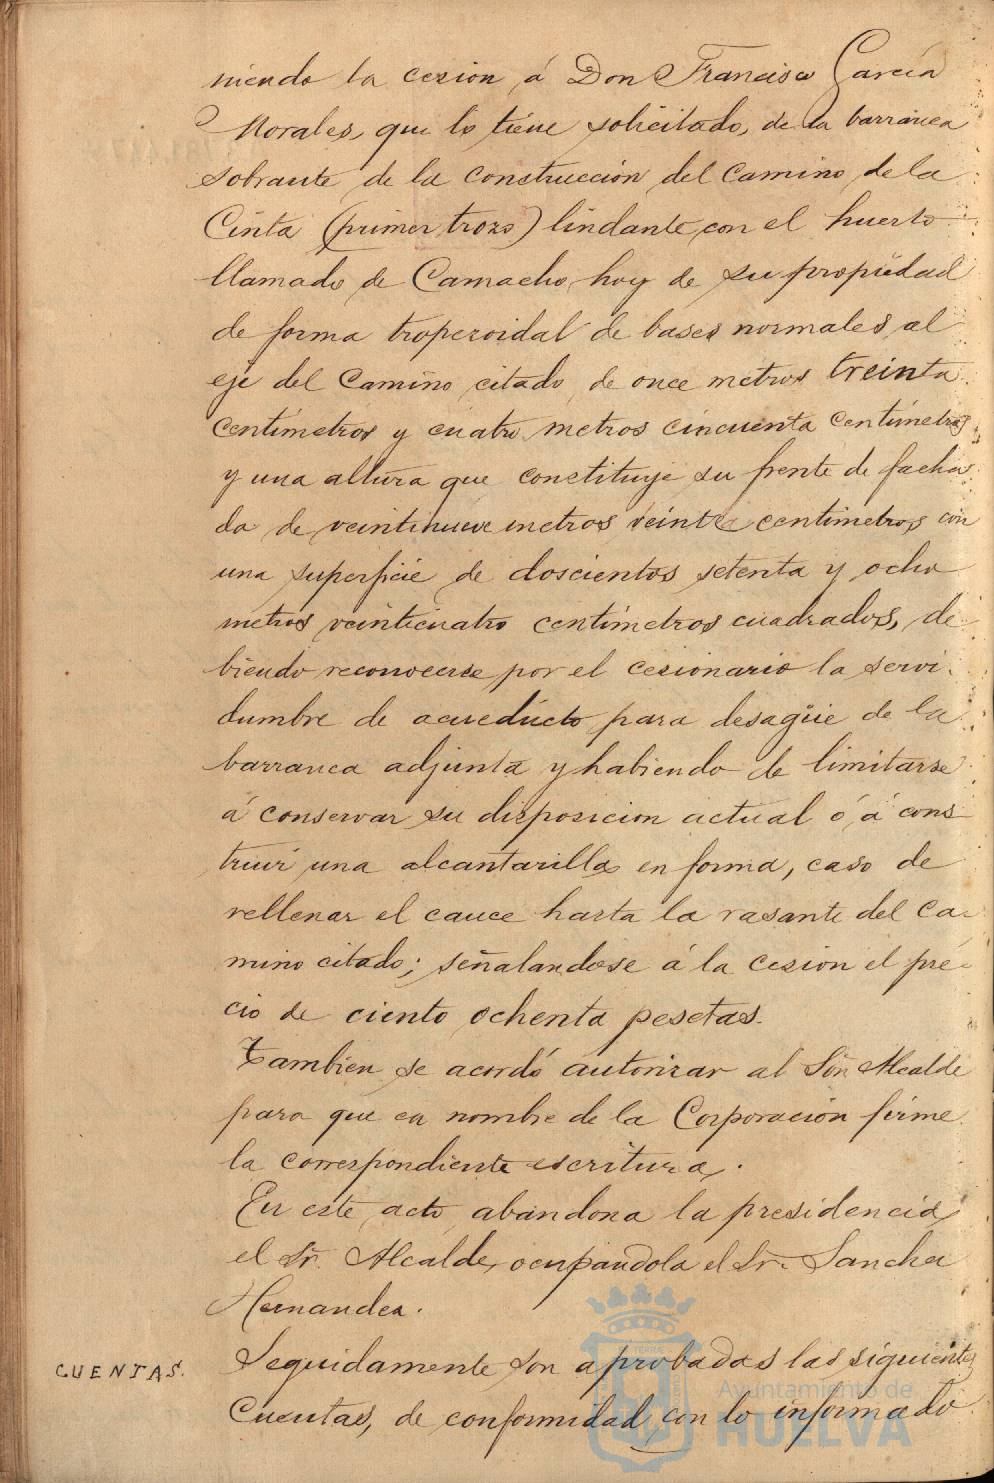 niendo la cesion á Don Francisco García
Morales, que lo tiene solicitado, de la barranca
sobrante de la construccion del Camino de la
Cinta (primer trozo) lindante con el huerto
llamado de Camacho, hoy de su propiedad
de forma troperoidal de bases normales al
eje del Camino citado, de once metros treinta
centímetros y cuatro metros cincuenta centímetros
y una altura que constituye su frente de facha
da de veintinueve metros veinte centimetros con
una superficie de doscientos setenta y ocho
metros veinticuatro centímetros cuadrados, de-
biendo reconocerse por el cesionario la servi-
dumbre de acueducto para desagüe de la
barranca adjunta y habiendo de limitarse
á conservar su disposicion actual ó á cons
truir una alcantarilla en forma, caso de
rellenar el cauce hasta la rasante del Ca-
mino citado; señalandose á la cesion el pre-
cio de ciento ochenta pesetas.
Tambien se acordó autorizar al Sõr Alcalde
para que en nombre de la Corporacion firme
la correspondiente escritura.
En este acto abandona la presidencia
el Sr. Alcalde, ocupandola el Sr. Sanchez
Hernandez.
CUENTAS. Seguidamente son aprobadas las siguientes
Cuentas, de conformidad con lo informado
Ayuntamiento de
HUELVA